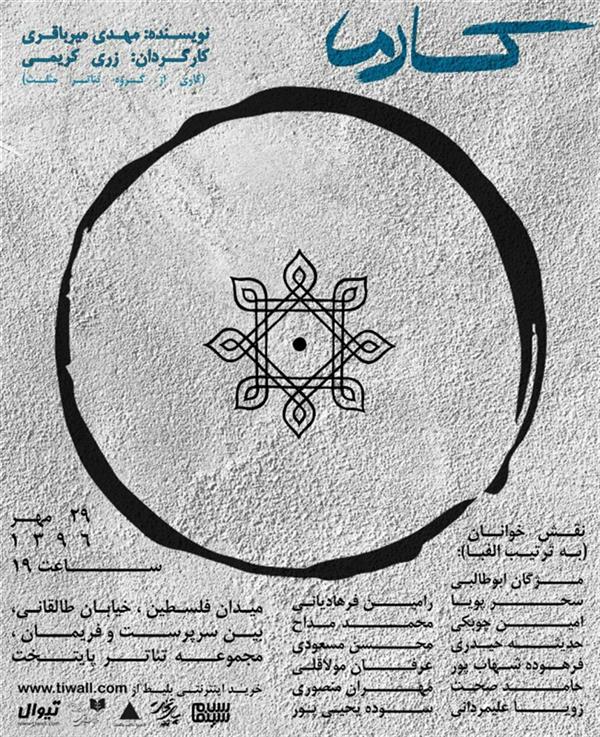 کارما
نویسنده: مهدی میرباقری
کارگردان: زری کریمی
(کاری از گروه تئاتر مثلث)
۲۹ مهر
۱۳۹۶
ساعت ۱۹
میدان فلسطین ، خیابان طالقانی،
بین سرپرست و فریمان ،
مجموعه تئاتر پایتخت
خرید اینترنتی بلیط از www.tiwall.com
تیوال
نقش خوانان
(به ترتیب الفبا):
مژگان ابوطالبی
سحر پویا
امین چوبکی
حدیثه حیدری
فرهوده شهاب پور
حامد صحت
رویا علیمردانی
رامین فرهادیانی
محمد مداح
محسن مسعودی
عرفان مولاقلی
مهران منصوری
سوده یحیی پور